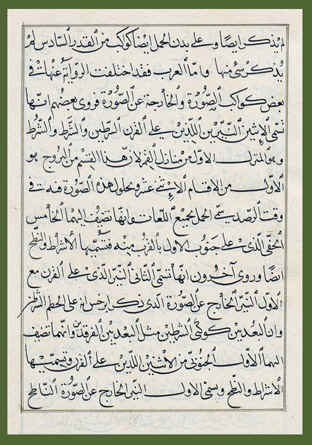 لم يذكر ايضًا وعلى بدن الحمل ايضًا كوكب من القدر السادس لم
يذكر شئ منها وامّا العرب فقد اختلفت الرواية عنها في
بعض كواكب الصّورة والخارجة عن الصّورة فروى بعضهم انّها
تسمّى الاثنين النيّرين اللّذين على القرن الشرطين والشرط
وهو المنزل الاوّل من منازل القمر لانّ هذا القسم من البروج هو
الاوّل من الاقسام الاثنى عشر وبحلول هذه الصّورة في
وقت الرصد سمى الحمل بجميع اللغات وانها تضيف اليهما الخامس
الخفيّ الذى على جنوب الاول بالقرب منه فتسميها الاشراط والنطح
ايضا وروى آخرون انها تسمّى الثانى النيّر الذى على القرن مع
الاوّل النيّر الخارج عن الصّورة الذى ذكر ابرخس انه على الخطم الشرطين
وان البعد بين كوكبى الشرطين مثل البعد بين الفرقدين وانهما تضيف
اليهما الاوّل الجنوبىّ من الاثنين اللّذين على القرن وتسمّيها
الاشراط والنطح ويسمى الاوّل النيّر الخارج عن الصّورة الناطح